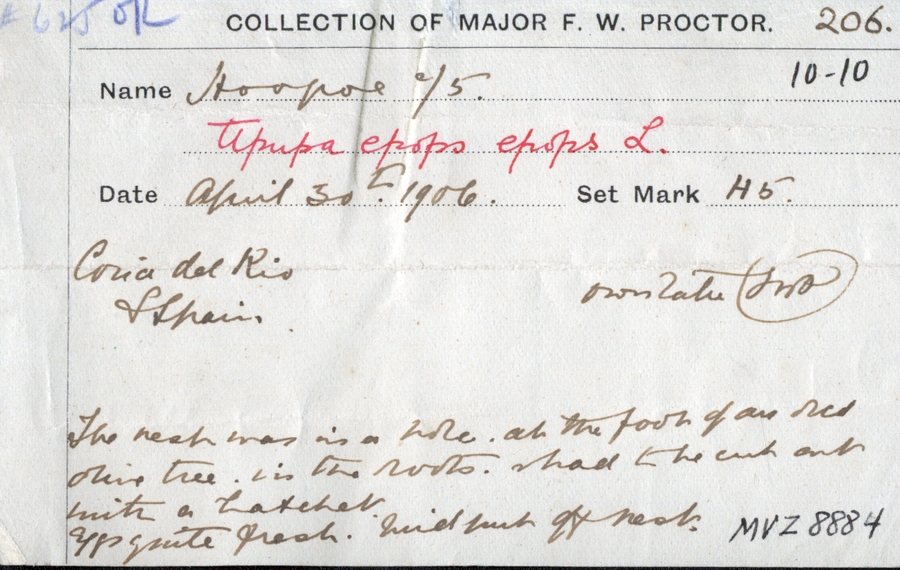 # 625 OR
COLLECTION OF MAJOR F. W. PROCTOR. 206.
10-10
Name Hoopoe c/5.
Upupa epops epops L.
Date April 30th. 1906. Set Mark H5.
Coria del Rio
S Spain.
own taken FWP
The nest was in a hole. at the foot of an old
olive tree. in the roots. & had to be cut out
with a hatchet
Eggs quite fresh. bird put off nest.
MVZ 8884